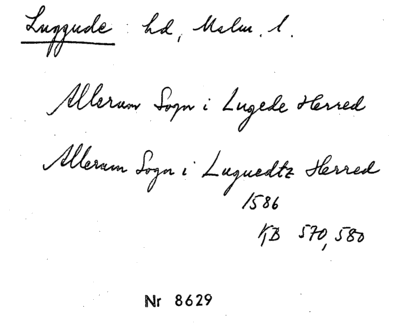 Luggude hd, Malm. l.
Allerum Sogn i Lugede Herred
Allerum Sogn i Luguedtz Herred
1586
KB 570, 580
Nr 8629